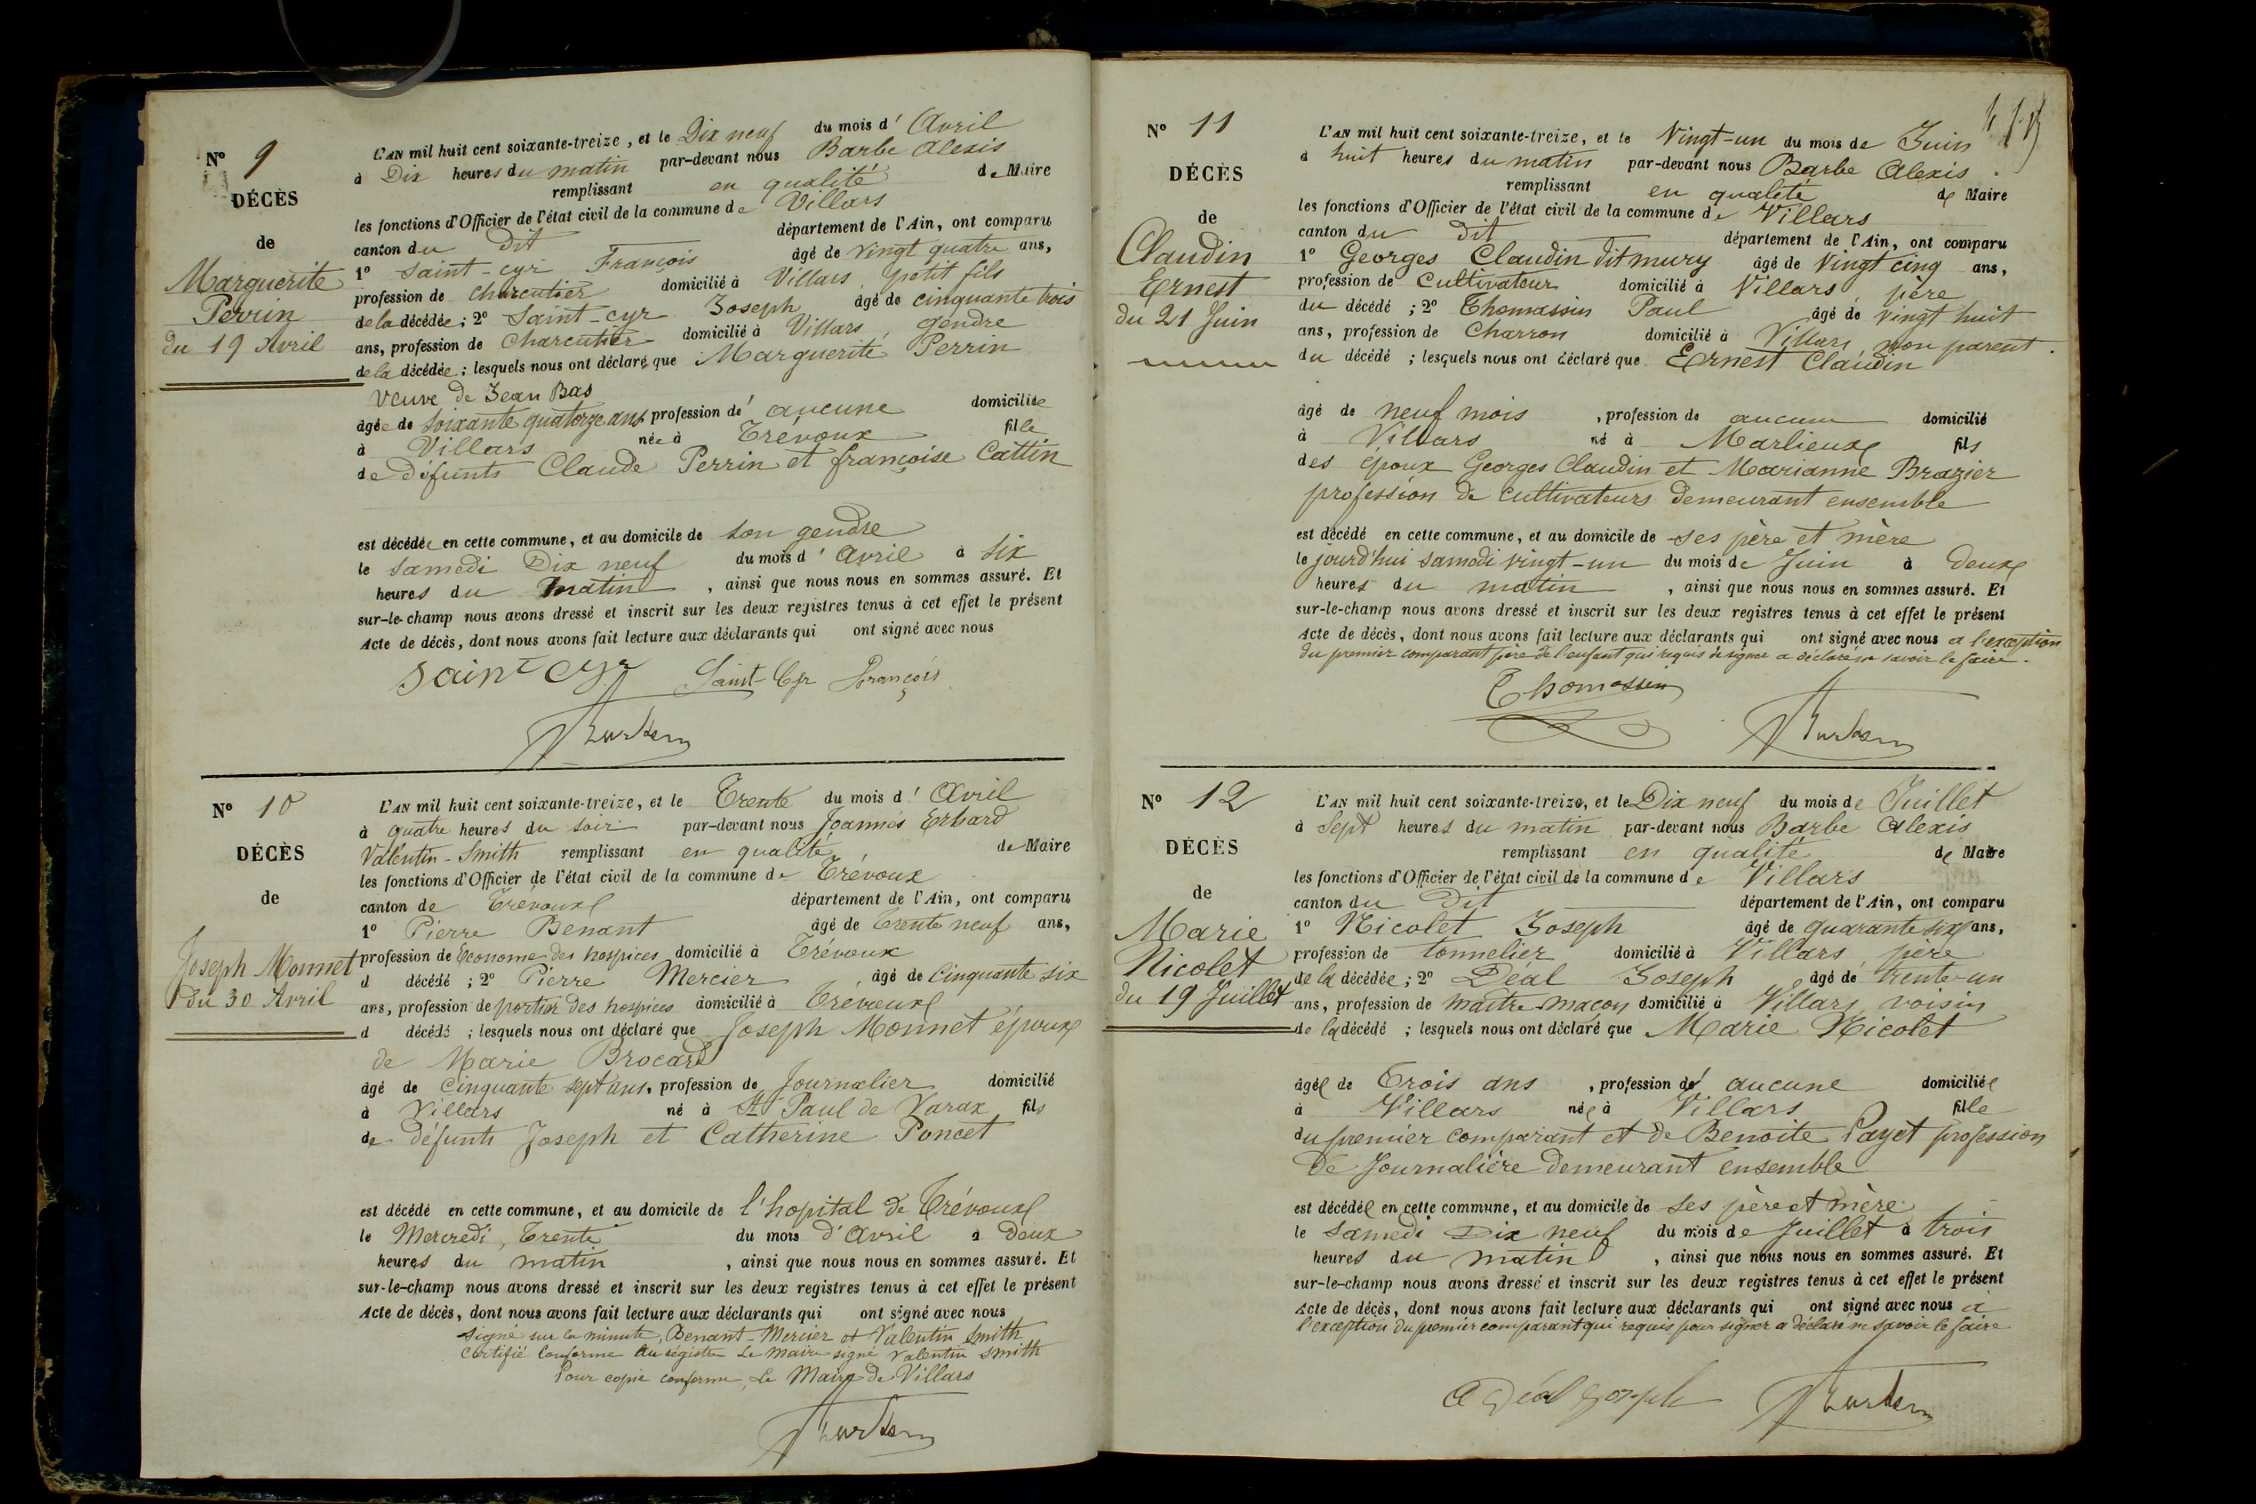 N° 9
DÉCÈS
de
Marguerite
Perrin
du 19 Avril
L'AN mil huit cent soixante-treize, et le Dix neuf du mois d'Avril
à Dix heures du matin par-devant nous Barbe Alexis
remplissant en qualité de Maire
les fonctions d'Officier de l'état civil de la commune de Villars
canton du Dit département de l'Ain, ont comparu
1° Saint-cyr François âgé de vingt quatre ans,
profession de charcutier domicilié à Villars, petit fils
de la décédée ; 2° Saint-cyr Joseph âgé de cinquante trois
ans, profession de Charcutier domicilié à Villars, gendre
de la décédée ; lesquels nous ont déclaré que Marguerite Perrin
veuve de Jean Bas
âgée de soixante quatorze ans, profession d'aucune domiciliée
à Villars née à Trévoux fille
de défunts Claude Perrin et françoise Cattin
est décédée en cette commune, et au domicile de son gendre
le samedi Dix neuf du mois d'avril à six
heures du matin, ainsi que nous nous en sommes assuré. Et
sur-le-champ nous avons dressé et inscrit sur les deux registres tenus à cet effet le présent
Acte de décès, dont nous avons fait lecture aux déclarants qui ont signé avec nous
Saint Cyr Saint-Cyr François
N° 10
DÉCÈS
de
Joseph Monnet
du 30 Avril
L'AN mil huit cent soixante-treize, et le Trente du mois d'Avril
à quatre heures du soir par-devant nous Joannès Erhard
Valentin-Smith remplissant en qualité de Maire
les fonctions d'Officier de l'état civil de la commune de Trévoux
canton de Trévoux département de l'Ain, ont comparu
1° Pierre Benant âgé de Trente neuf ans,
profession de Econome des hospices domicilié à Trévoux
d décédé ; 2° Pierre Mercier âgé de Cinquante six
ans, profession de portier des hospices domicilié à Trévoux
d décédé ; lesquels nous ont déclaré que Joseph Monnet époux
de Marie Brocard
âgé de Cinquante sept ans, profession de Journalier domicilié
à Villars né à St Paul de Varax fils
de défunts Joseph et Catherine Poncet
est décédé en cette commune, et au domicile de l'hopital de Trévoux
le Mercredi, Trente du mois d'avril à Deux
heures du matin, ainsi que nous nous en sommes assuré. Et
sur-le-champ nous avons dressé et inscrit sur les deux registres tenus à cet effet le présent
Acte de décès, dont nous avons fait lecture aux déclarants qui ont signé avec nous
signé sur la minute, Benant-Mercier et Valentin Smith
Certifié Conforme au régistre Le Maire signé Valentin Smith
Pour copie conforme, Le Maire de Villars
N° 11
DÉCÈS
de
Claudin
Ernest
du 21 Juin
L'AN mil huit cent soixante-treize, et le Vingt-un du mois de Juin
à huit heures du matin par-devant nous Barbe Alexis
remplissant en qualité de Maire
les fonctions d'Officier de l'état civil de la commune de Villars
canton du Dit département de l'Ain, ont comparu
1° Georges Claudin dit mury âgé de Vingt cinq ans,
profession de Cultivateur domicilié à Villars, père
du décédé ; 2° Thomassin Paul âgé de vingt huit
ans, profession de Charron domicilié à Villars, non parent.
du décédé ; lesquels nous ont déclaré que Ernest Claudin
âgé de neuf mois, profession de aucune domicilié
à Villars né à Marlieux fils
des époux Georges Claudin et Marianne Brazier
profession de cultivateurs demeurant ensemble
est décédé en cette commune, et au domicile de ses père et mère
le jourd'hui samedi vingt-un du mois de Juin à deux
heures du matin, ainsi que nous nous en sommes assuré. Et
sur-le-champ nous avons dressé et inscrit sur les deux registres tenus à cet effet le présent
Acte de décès, dont nous avons fait lecture aux déclarants qui ont signé avec nous a l'exception
du premier comparant père de l'enfant qui requis de signer a déclaré ne savoir le faire.
Thomassin
N° 12
DÉCÈS
de
Marie
Nicolet
du 19 Juillet
L'AN mil huit cent soixante-treize, et le Dix neuf du mois de Juillet
à Sept heures du matin par-devant nous Barbe Alexis
remplissant en qualité de Maire
les fonctions d'Officier de l'état civil de la commune de Villars
canton du Dit département de l'Ain, ont comparu
1° Nicolet Joseph âgé de quarante six ans,
profession de tonnelier domicilié à Villars, père
de la décédée ; 2° Déal Joseph âgé de trente-un
ans, profession de maître maçon domicilié à Villars, voisin
de la décédé ; lesquels nous ont déclaré que Marie Nicolet
âgée de Trois ans, profession d'aucune domiciliée
à Villars née à Villars fille
du premier comparant et de Benoite Payet profession
de Journalière demeurant ensemble
est décédée en cette commune, et au domicile de ses père et mère
le samedi Dix neuf du mois de Juillet à trois
heures du matin, ainsi que nous nous en sommes assuré. Et
sur-le-champ nous avons dressé et inscrit sur les deux registres tenus à cet effet le présent
Acte de décès, dont nous avons fait lecture aux déclarants qui ont signé avec nous à
l'exception du premier comparant qui requis pour signer a déclaré ne savoir le faire
Déal Joseph